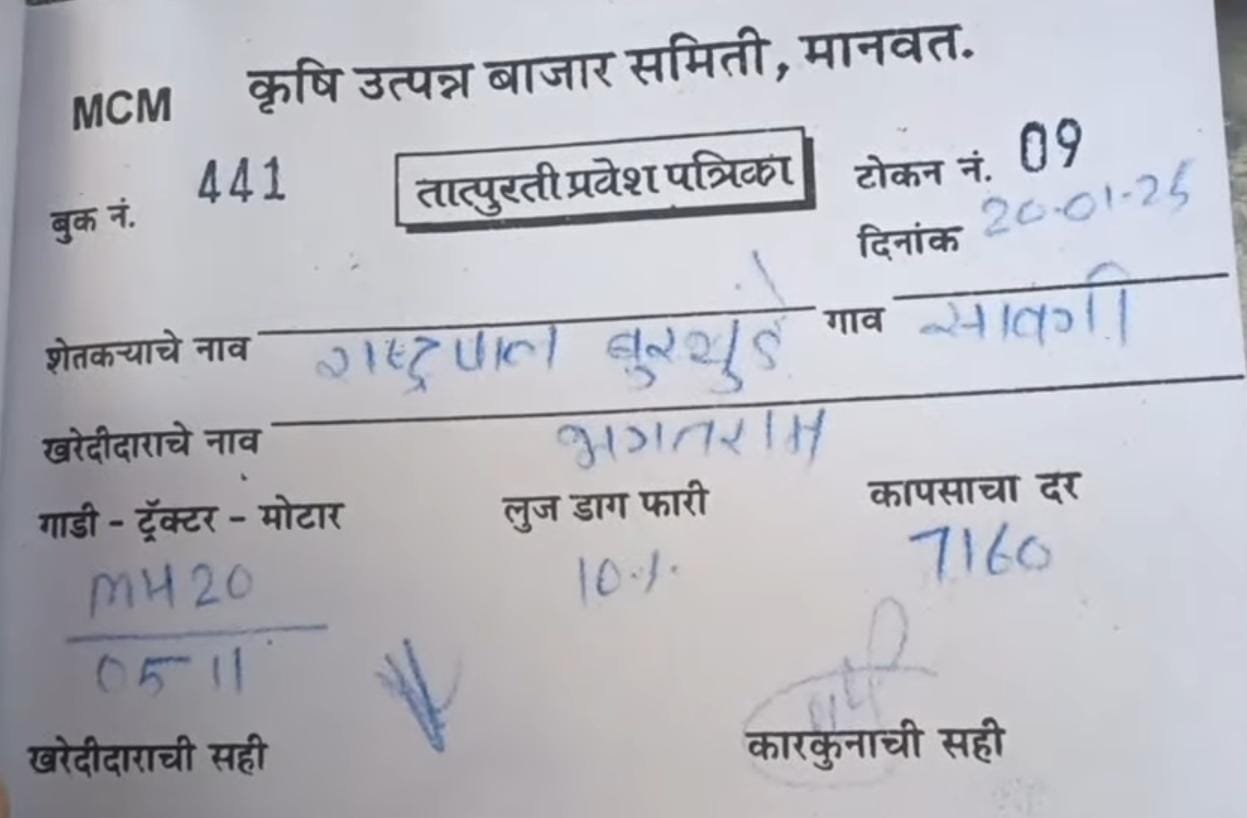 MCM कृषि उत्पन्न बाजार समिती, मानवत.
बुक नं. 441 तात्पुरती प्रवेश पत्रिका टोकन नं. 09
दिनांक 20-01-25
शेतकऱ्याचे नाव राष्ट्रपाल गाव सावंगी
खरेदीदाराचे नाव भगतराम
गाडी - ट्रॅक्टर - मोटार लुज डाग फारी कापसाचा दर
MH20 10% 7160
0511
खरेदीदाराची सही कारकुनाची सही